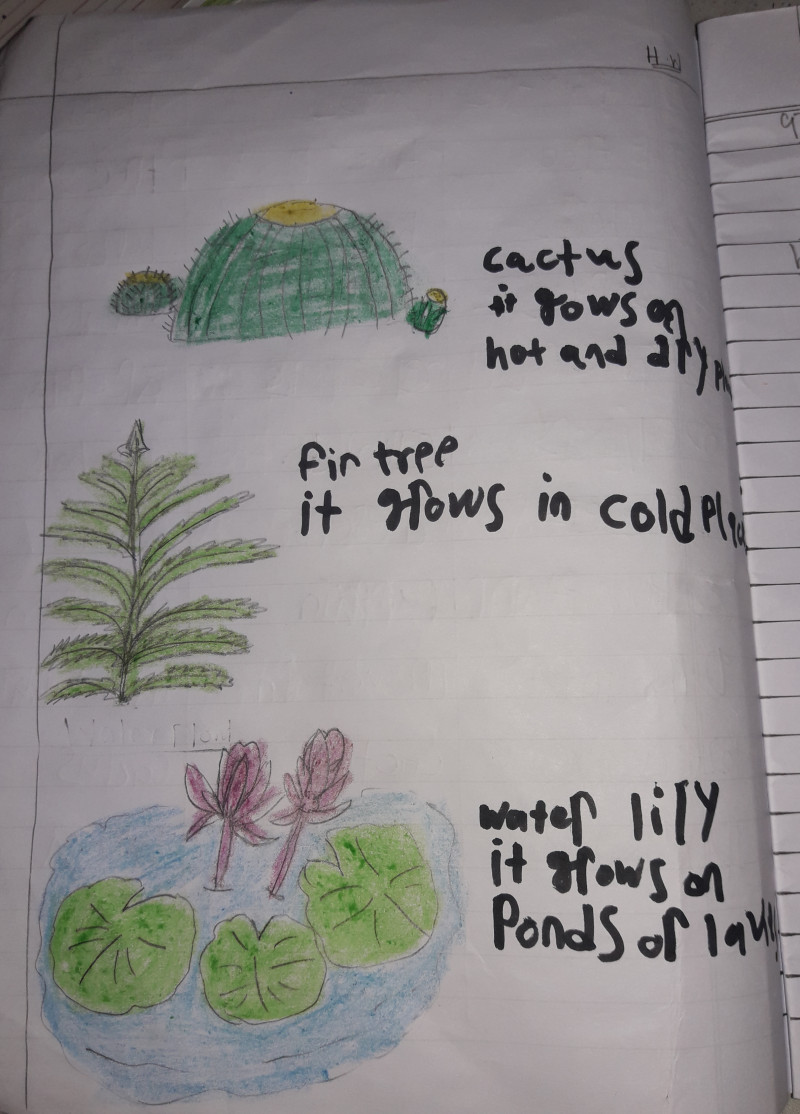 H.W
cactus
it grows on
hot and dry
fir tree
it grows in cold
water lily
it grows on
Ponds or